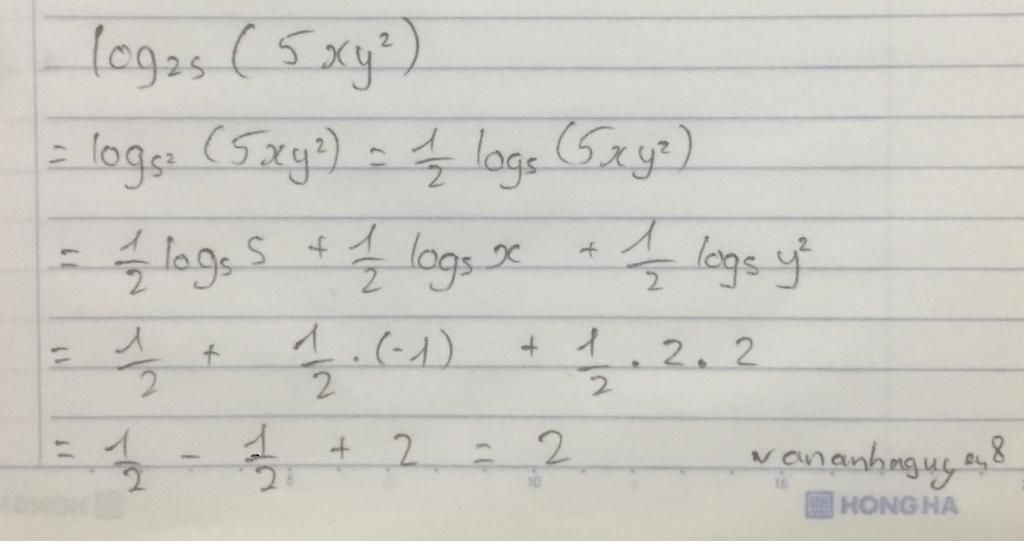 log₂₅ (5xy²)
= log₅² (5xy²) = 1/2 log₅ (5xy²)
= 1/2 log₅ 5 + 1/2 log₅ x + 1/2 log₅ y²
= 1/2 + 1/2 . (-1) + 1/2 . 2 . 2
= 1/2 - 1/2 + 2 = 2
5 10 15
HONG HA